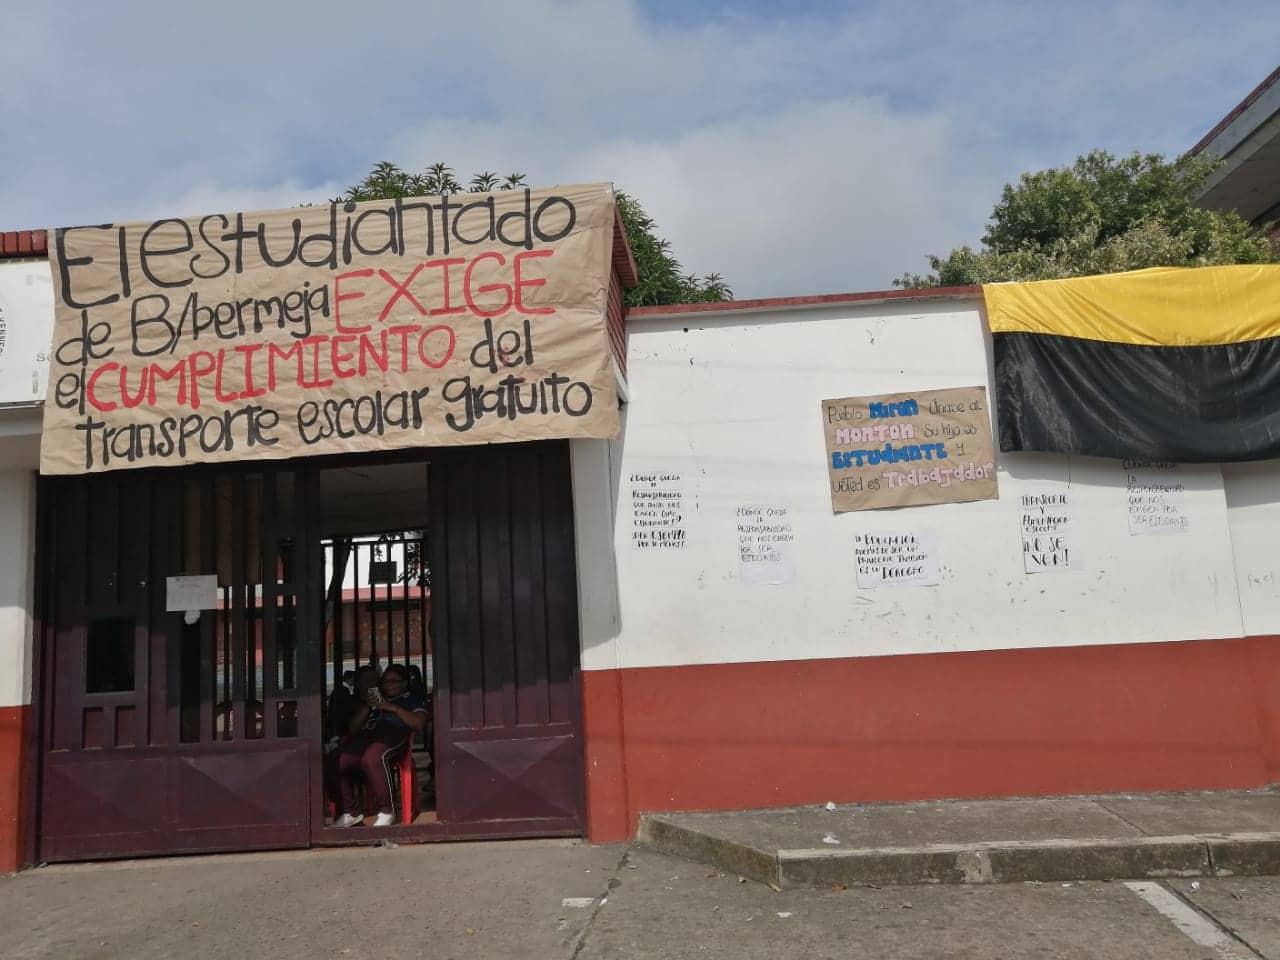 El estudiantado
de B/bermeja EXIGE
el CUMPLIMIENTO del
transporte escolar gratuito
Pueblo MIRON Unase al
MONTON Su hijo es
ESTUDIANTE y
Usted es Trabajador
¿DONDE QUEDA
LA
RESPONSABILIDAD
QUE
EXIGEN COMO
ESTUDIANTES?
¡DEN EJEMPLO
POR LO MENOS!
¿DONDE QUEDA
LA
RESPONSABILIDAD
QUE NOS EXIGEN
POR SER
LA EDUCACION
ADEMAS DE SER UN
TAMBIEN
ES UN DERECHO
TRANSPORTE
Y
ALIMENTACION
ESCOLAR
¡NO SE
VEN!
¿DONDE QUEDA
LA
RESPONSABILIDAD
QUE NOS
EXIGEN POR
SER ESTUDIANTES